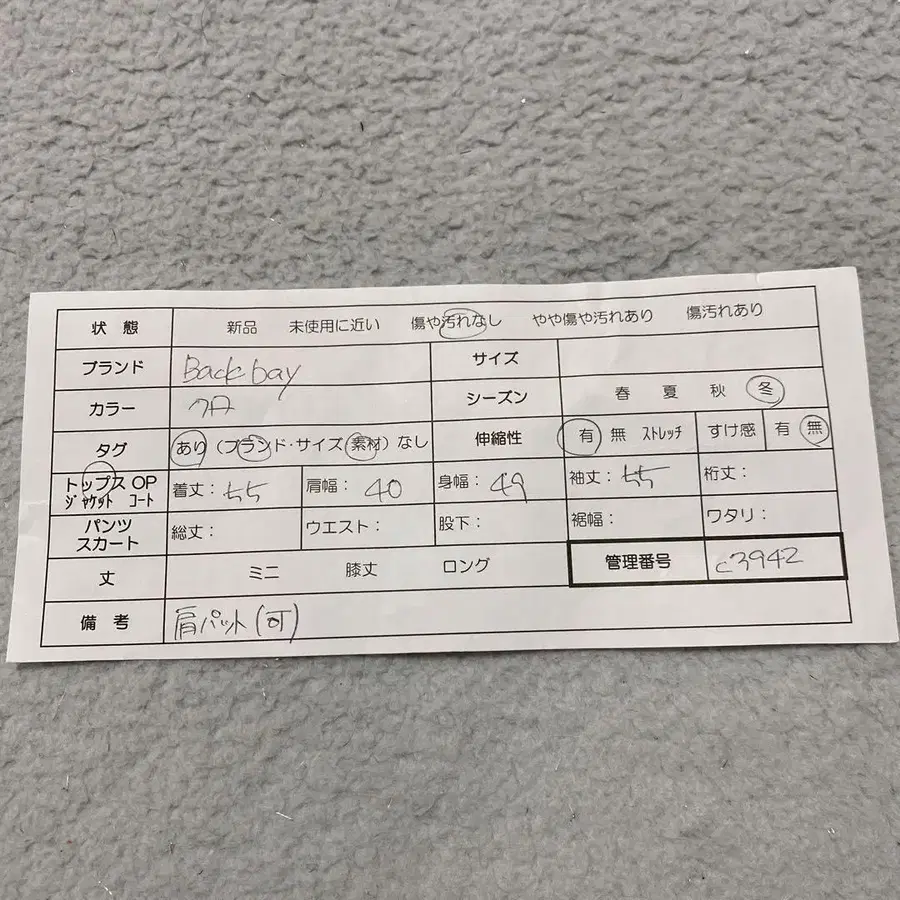 状 態 新品 未使用に近い 傷や汚れなし やや傷や汚れあり 傷汚れあり
ブランド Back bay サイズ
カラー シーズン 春 夏 秋 冬
タグ あり (ブランド・サイズ・素材) なし 伸縮性 有 無 ストレッチ すけ感 有 無
トップス OP
ジャケット コート 着丈: 55 肩幅: 40 身幅: 49 袖丈: 55 裄丈:
パンツ
スカート 総丈: ウエスト: 股下: 裾幅: ワタリ:
丈 ミニ 膝丈 ロング 管理番号 c3942
備 考 肩パット(可)